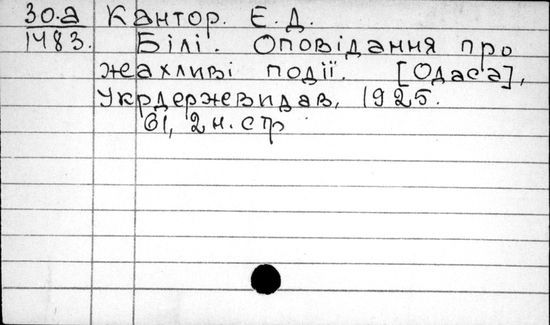 30.а Кантор. Є. Д.
1483. Білі. Оповідання про
жахливі події. [Одаса],
Укрдержевидав, 1925.
61, 2 н. стр